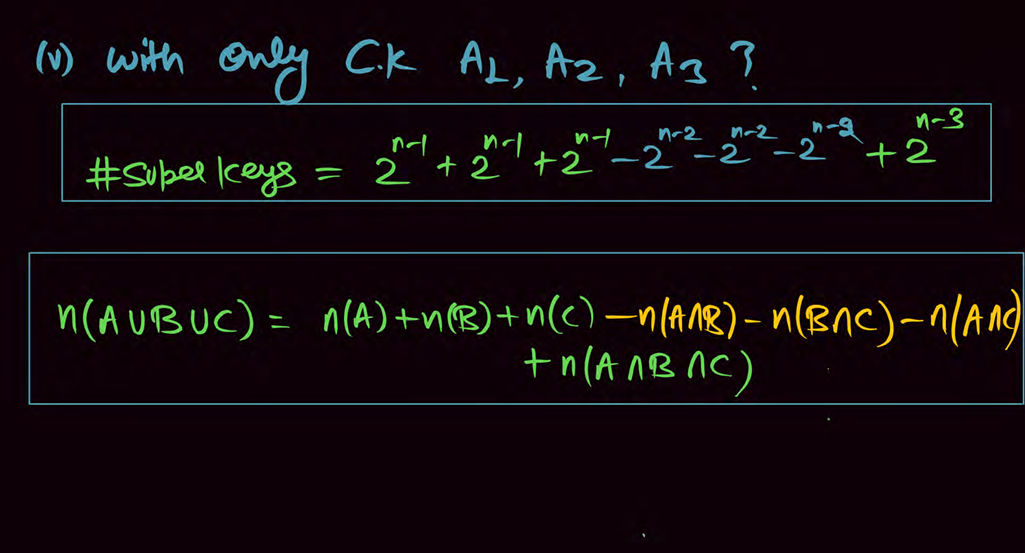 (v) with only C.K A1, A2, A3 ?
#Super keys = 2^n-1 + 2^n-1 + 2^n-1 - 2^n-2 - 2^n-2 - 2^n-2 + 2^n-3
n(A∪B∪C) = n(A) + n(B) + n(C) - n(A∩B) - n(B∩C) - n(A∩C)
+ n(A∩B∩C)